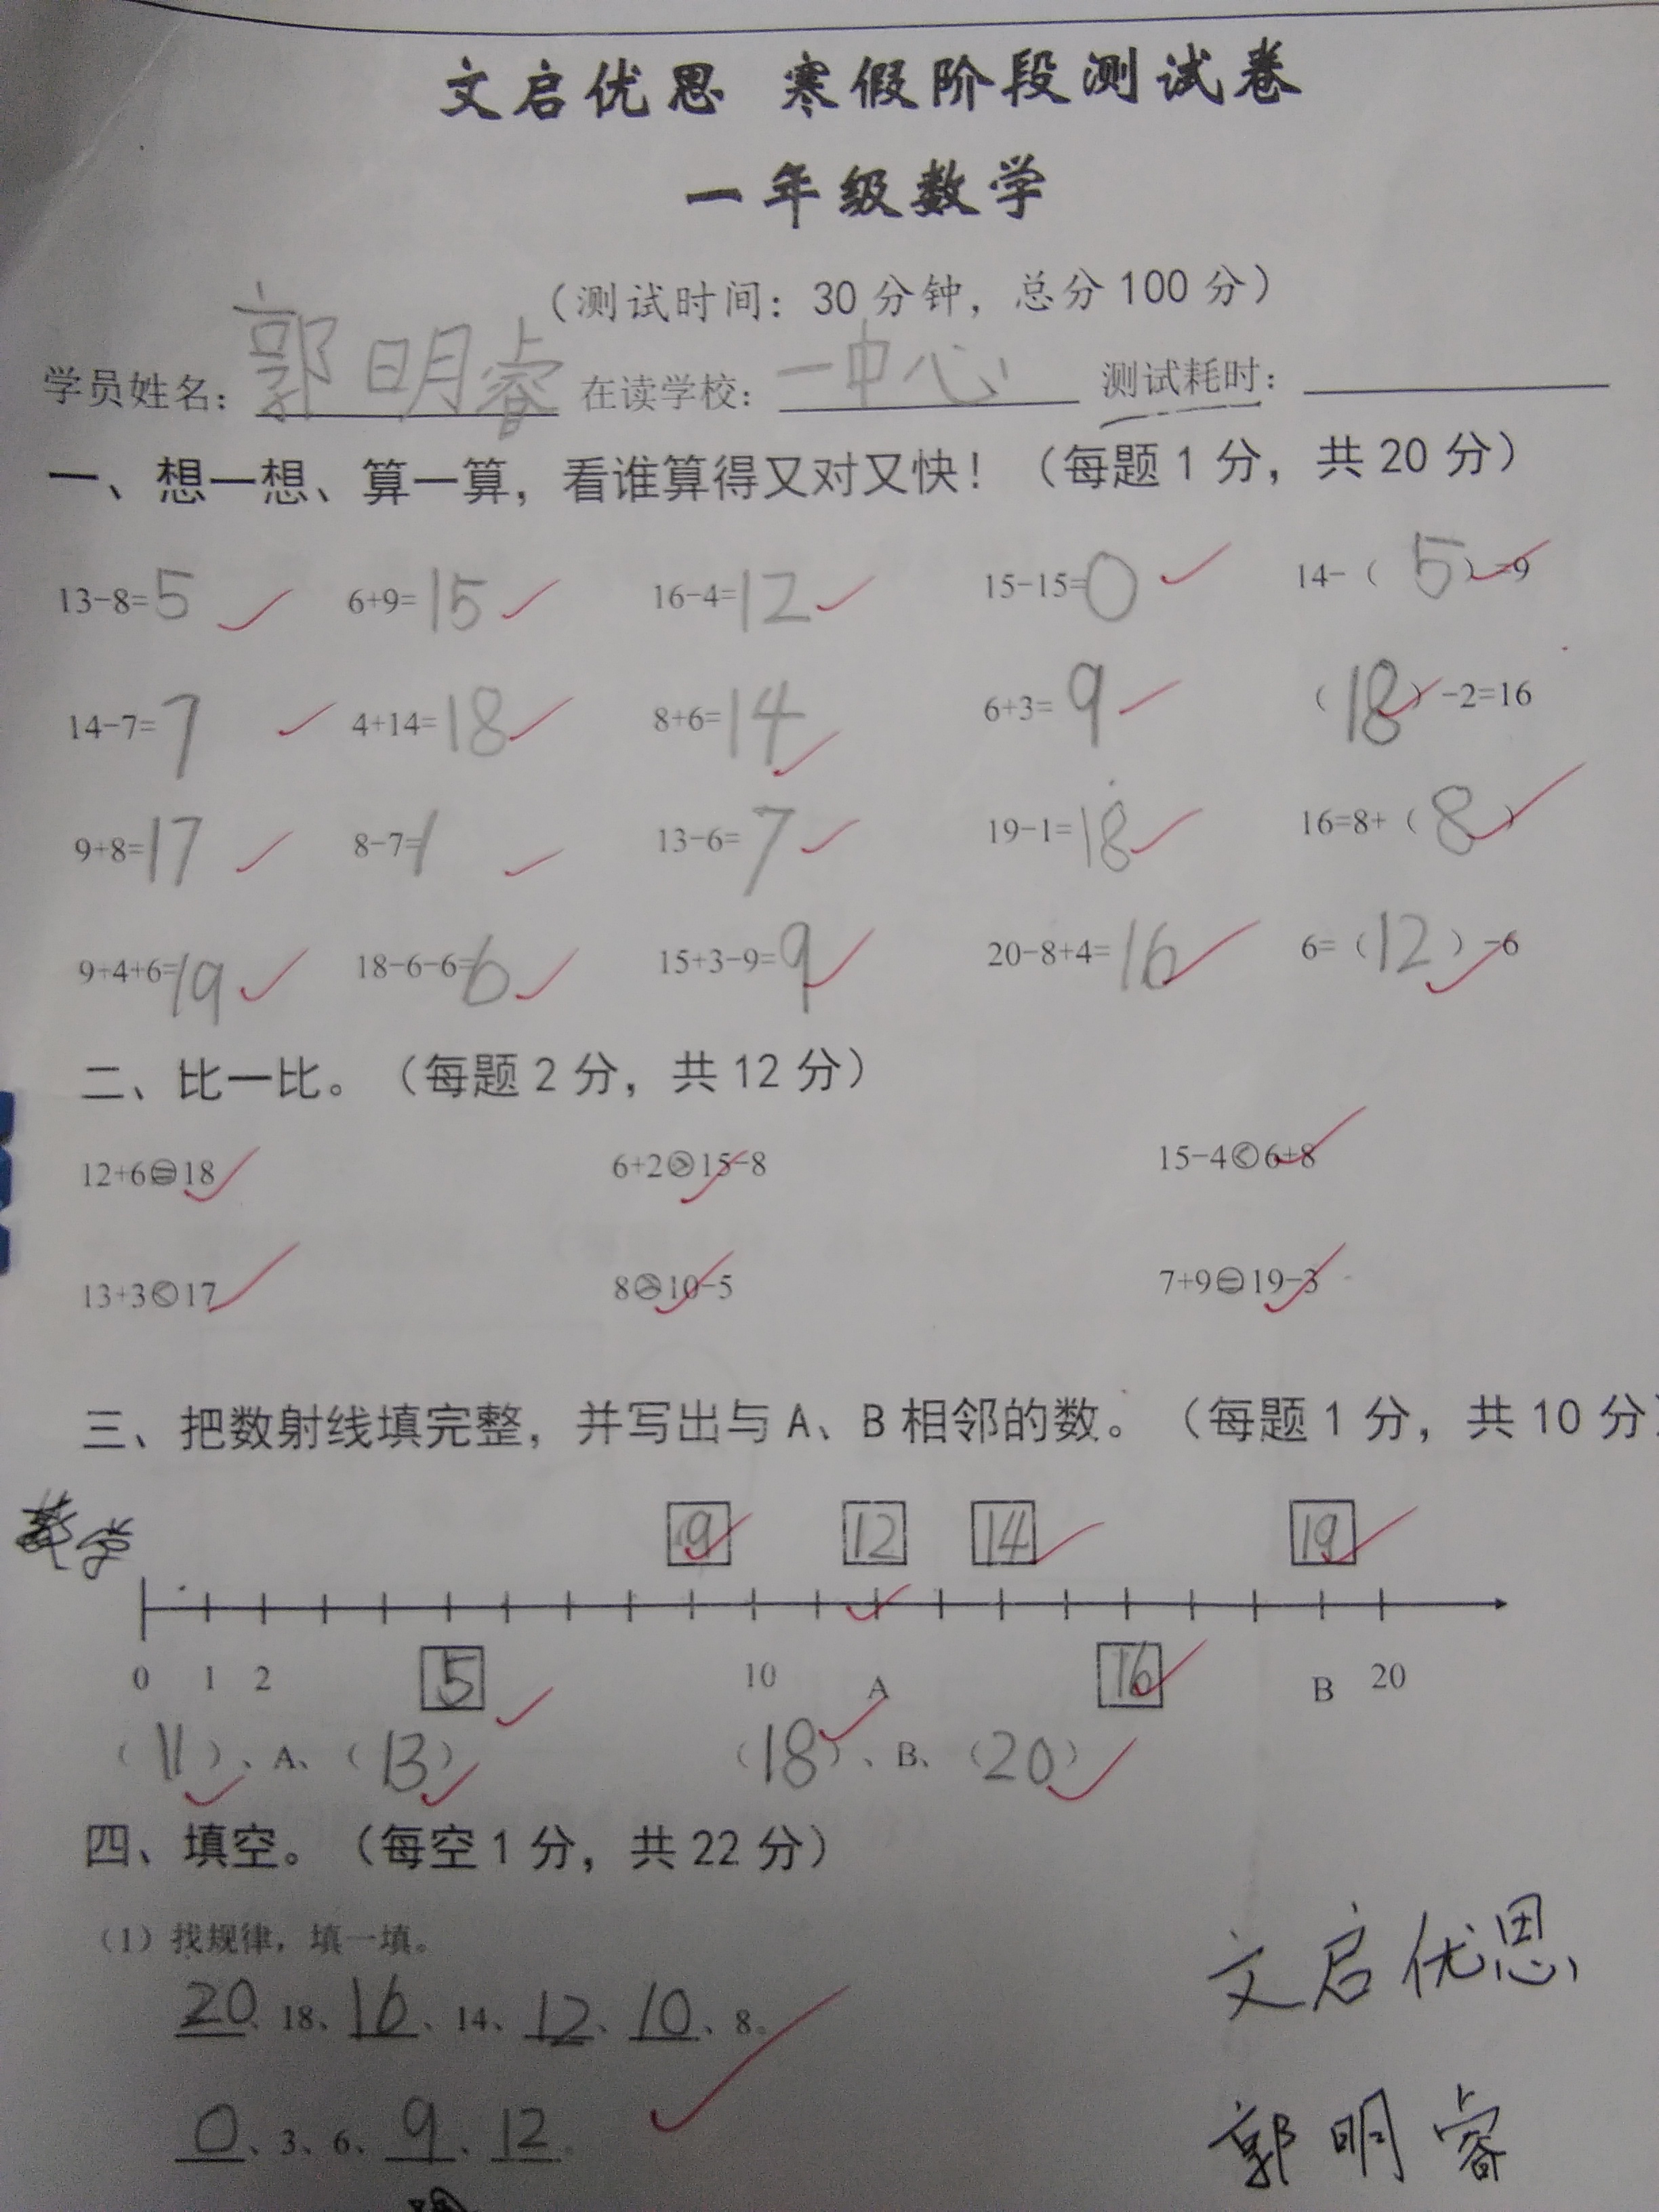 文启优思 寒假阶段测试卷
一年级数学
（测试时间：30分钟，总分100分）
学员姓名：郭明睿 在读学校：一中心 测试耗时：
一、想一想、算一算，看谁算得又对又快！（每题1分，共20分）
13-8=5 6+9=15 16-4=12 15-15=0 14-（5）=9
14-7=7 4+14=18 8+6=14 6+3=9 （18）-2=16
9+8=17 8-7=1 13-6=7 19-1=18 16=8+（8）
9+4+6=19 18-6-6=6 15+3-9=9 20-8+4=16 6=（12）-6
二、比一比。（每题2分，共12分）
12+6=18 6+2>15-8 15-4<6+8
13+3<17 8>10-5 7+9=19-3
三、把数射线填完整，并写出与A、B相邻的数。（每题1分，共10分）
9 12 14 19
数学
0 1 2 5 10 A 16 B 20
（11）、A、（13） （18）、B、（20）
四、填空。（每空1分，共22分）
（1）找规律，填一填。
20、18、16、14、12、10、8。
0、3、6、9、12。
文启优思
郭明睿